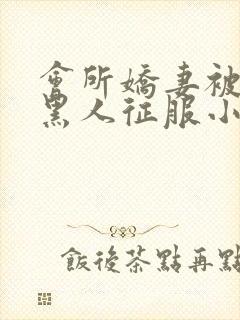 會所嬌妻被
黑人征服小
飯後茶點再點